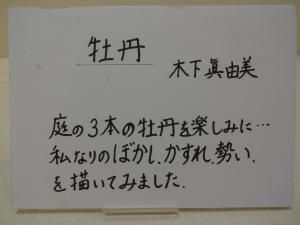 牡丹
木下眞由美
庭の3本の牡丹を楽しみに…
私なりのぼかし、かすれ、勢い、
を描いてみました.